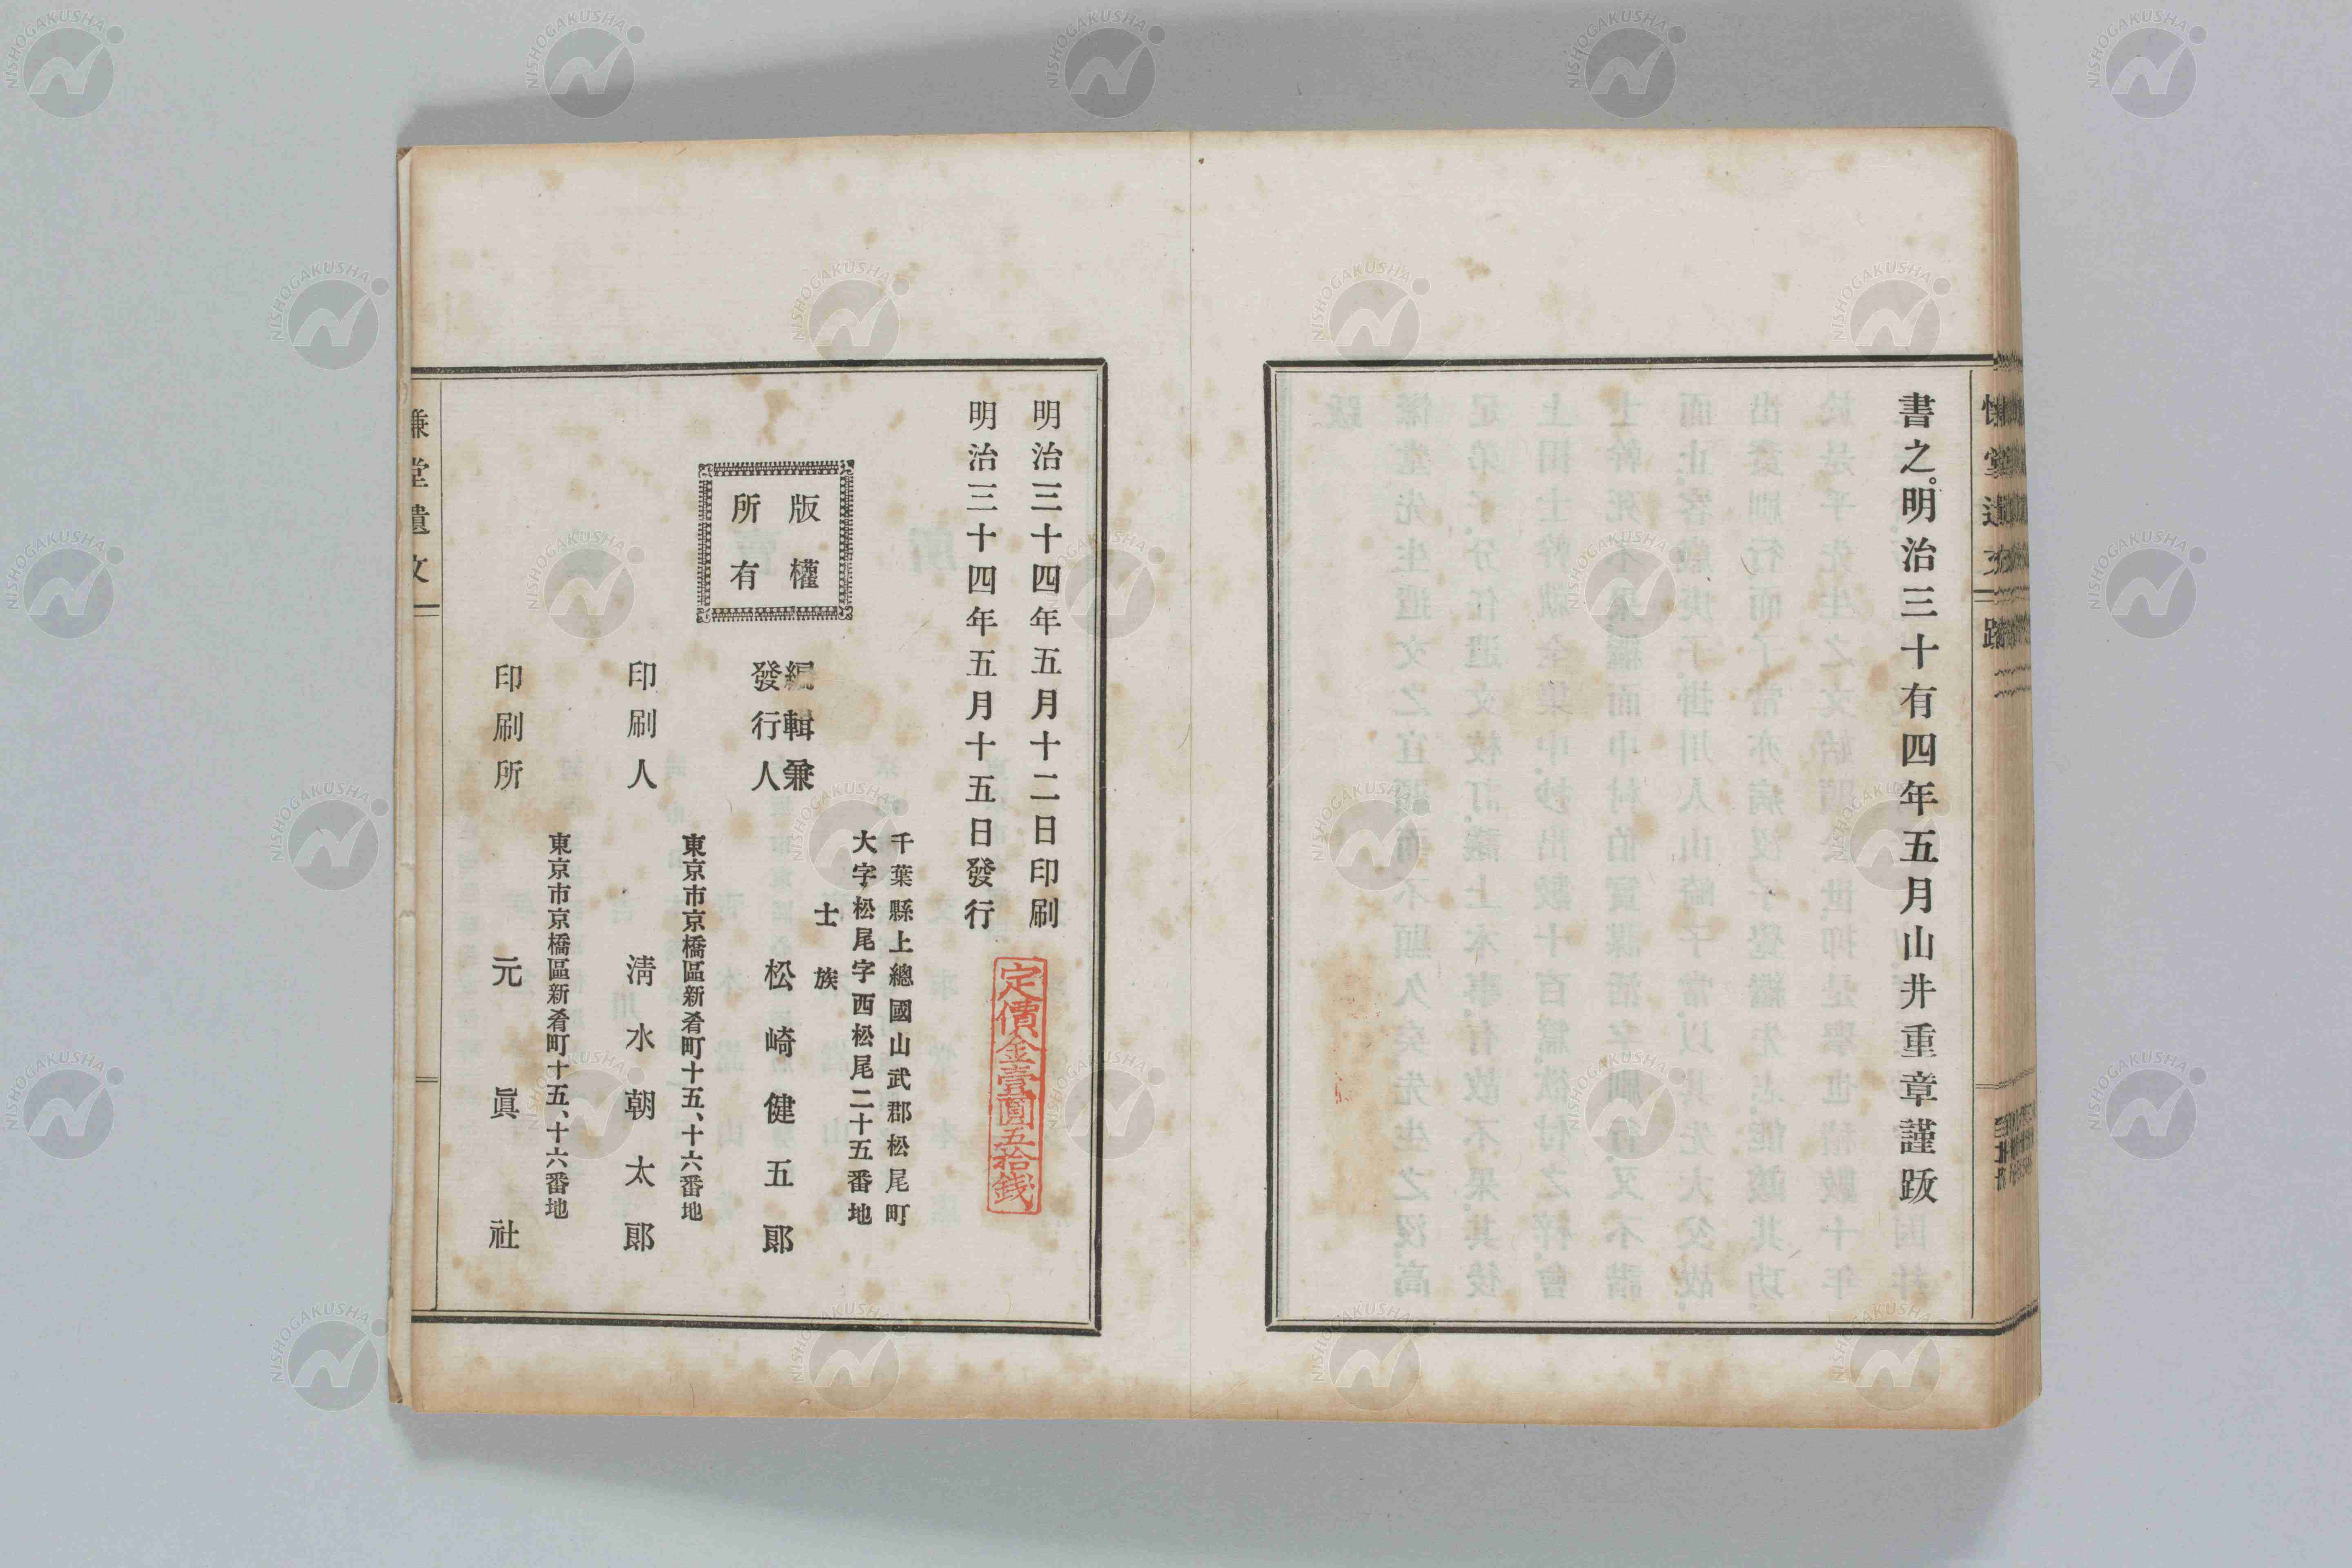 書之。明治三十有四年五月山井重章謹跋
明治三十四年五月十二日印刷
明治三十四年五月十五日發行
定價金壹圓五拾錢
版權
所有
千葉縣上總國山武郡松尾町
大字松尾字西松尾二十五番地
士族
編輯兼
發行人
松崎健五郎
東京市京橋區新肴町十五、十六番地
印刷人
淸水朝太郎
東京市京橋區新肴町十五、十六番地
印刷所
元眞社
慊堂遺文
NISHOGAKUSHA